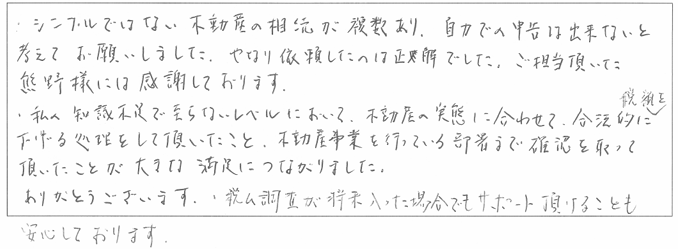 ・シンプルではない不動産の相続が複数あり、自力での申告は出来ないと
考えてお願いしました。やはり依頼したのは正解でした。ご担当頂いた
熊野様には感謝しております。
・私の知識不足で至らないレベルにおいて、不動産の実態に合わせて、合法的に税額を
下げる処理をして頂いたこと、不動産事業を行っている部署まで確認を取って
頂いたことが大きな満足につながりました。
ありがとうございます。・税ム調査が将来入った場合でもサポート頂けることも
安心しております。